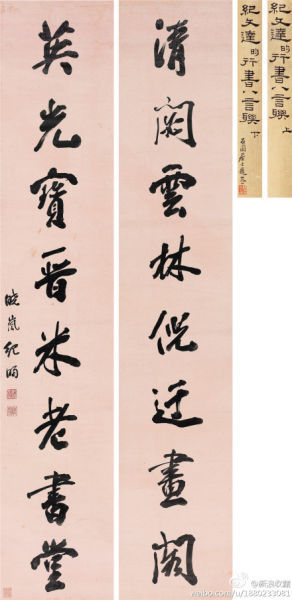 紀文達的行書八言聯 上
紀文達的行書八言聯 下
清閟雲林倪迂畫閣
英光寶晋米老書堂
曉嵐紀昀
@新浪收藏
weibo.com/u/1880233081